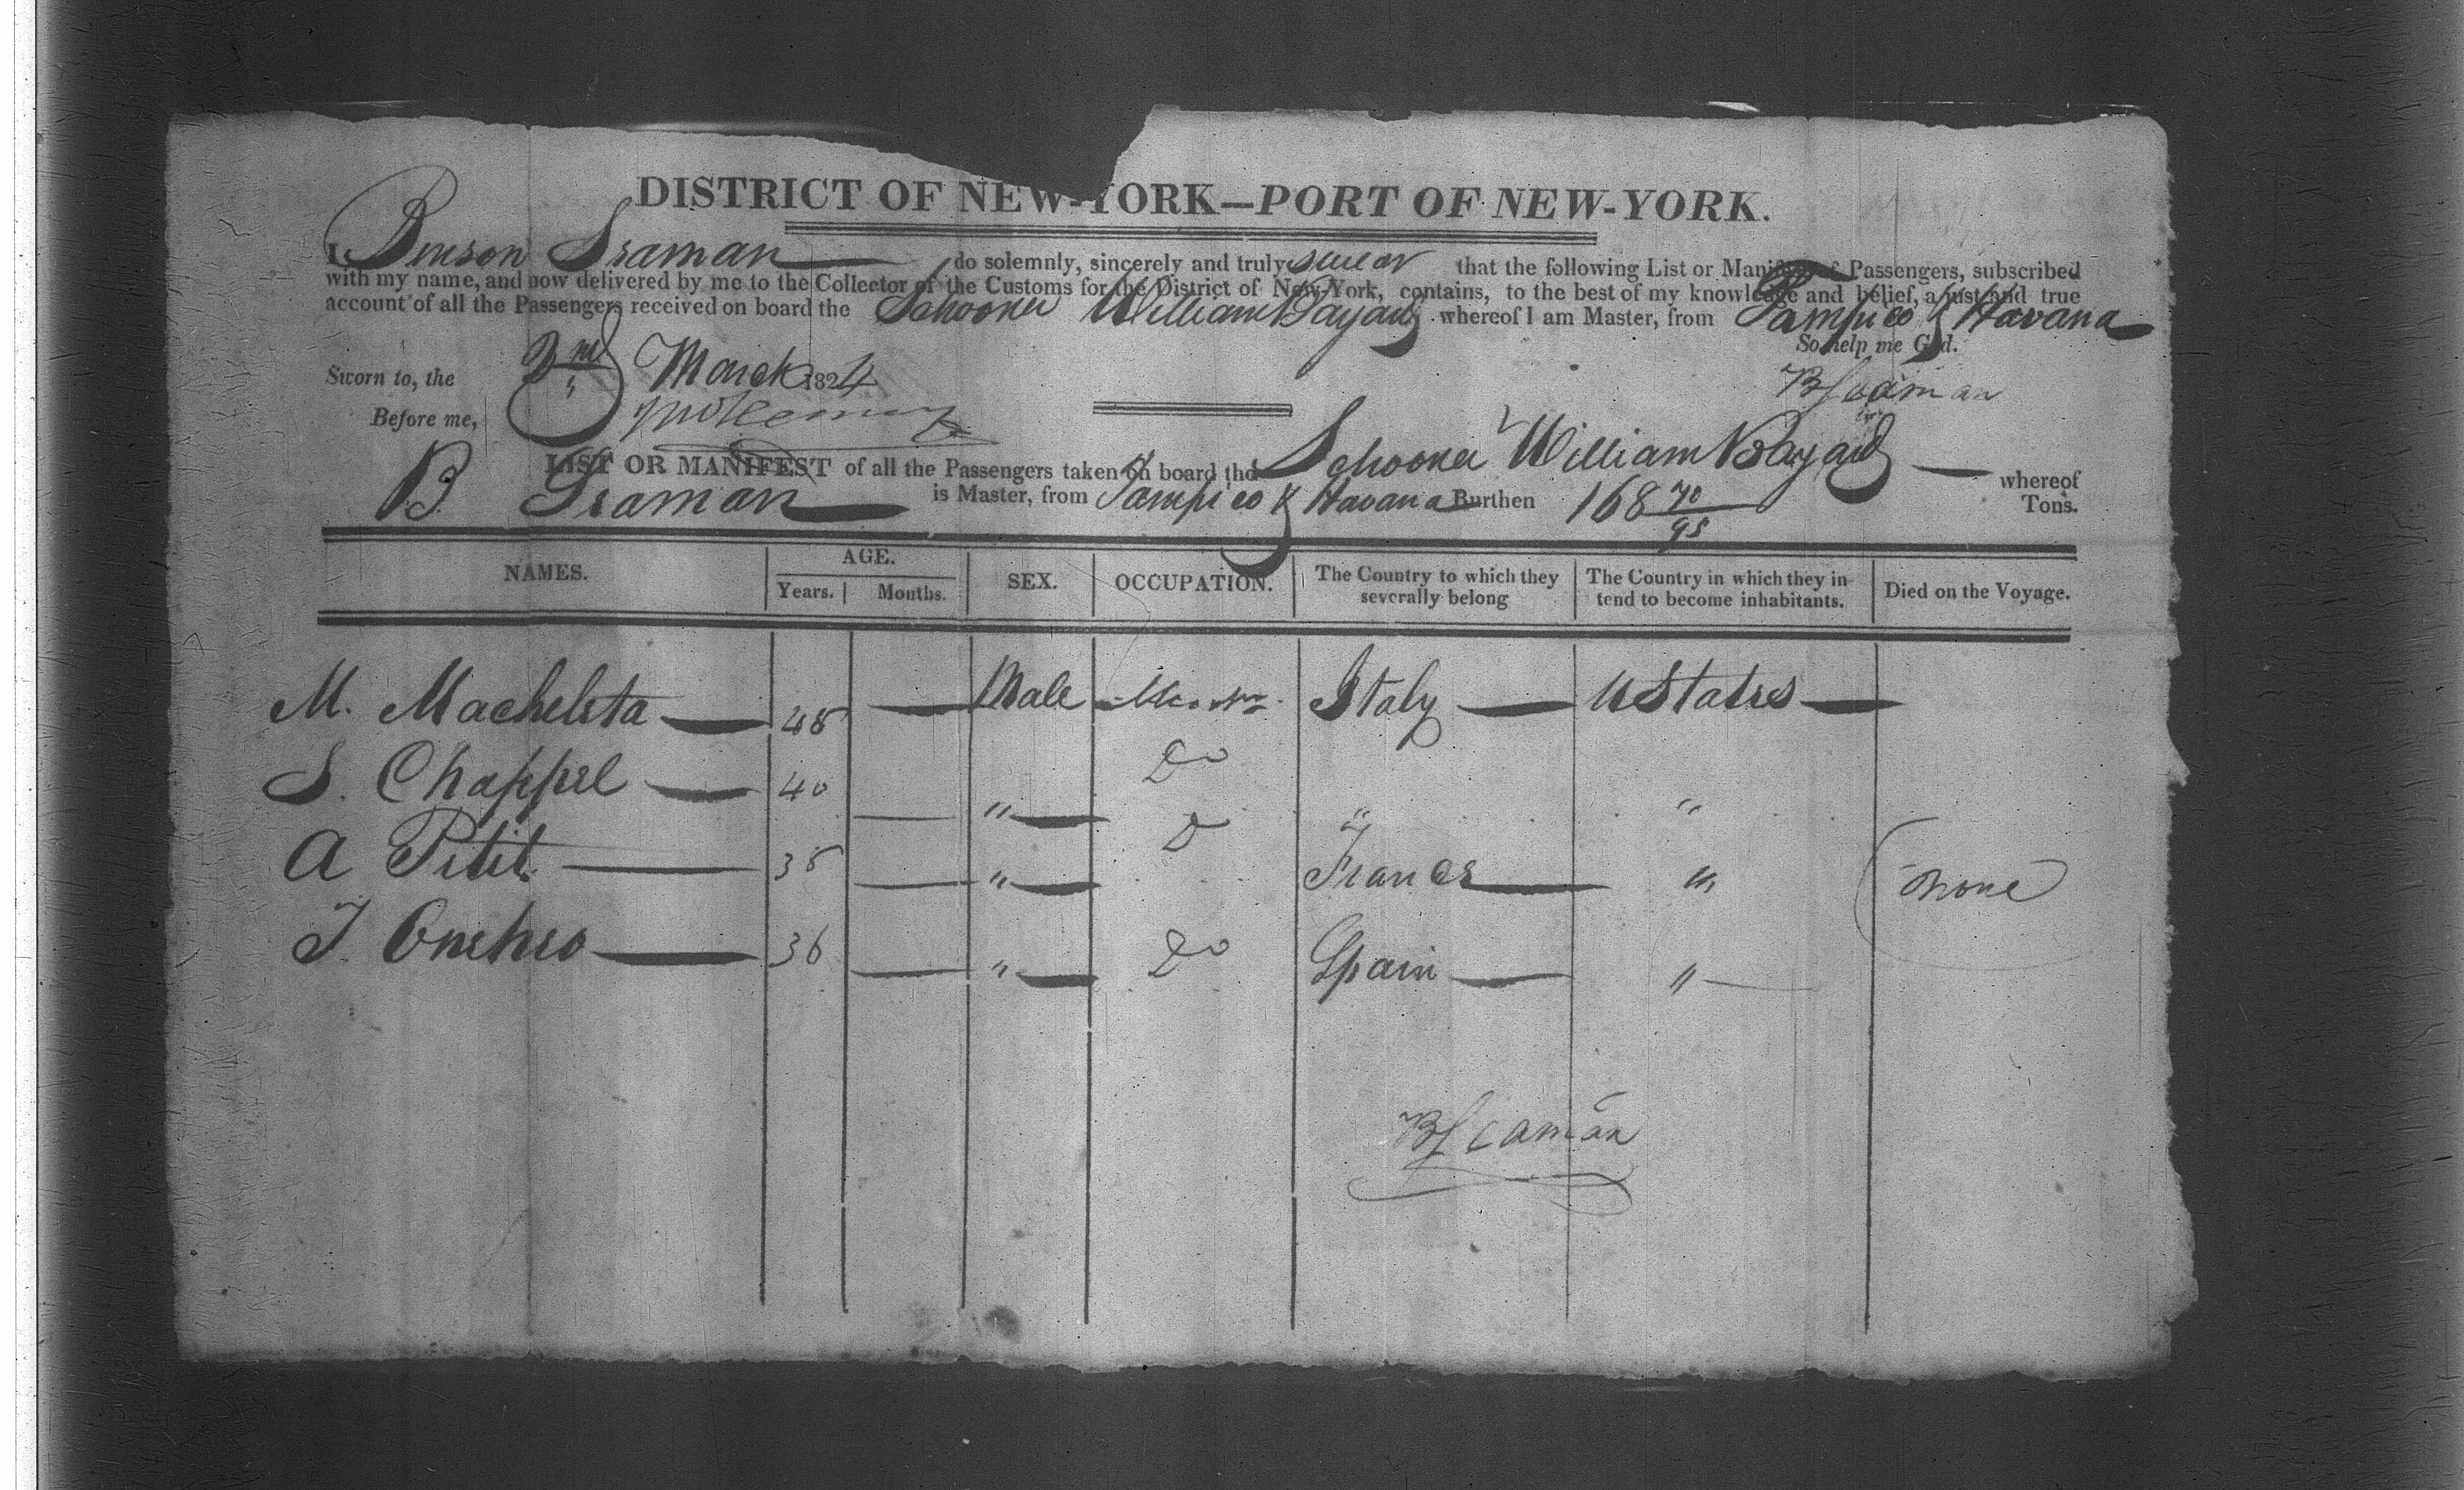 DISTRICT OF NEW-YORK—PORT OF NEW-YORK.
I, Benson Seaman do solemnly, sincerely and truly swear that the following List or Manifest of Passengers, subscribed
with my name, and now delivered by me to the Collector of the Customs for the District of New-York, contains, to the best of my knowledge and belief, a just and true
account of all the Passengers received on board the Schooner William Bayard whereof I am Master, from Tampico & Havana
So help me God.
Sworn to, the 2nd March 1824
BSeaman
Before me,
LIST OR MANIFEST of all the Passengers taken on board the Schooner William Bayard whereof
B Seaman is Master, from Tampico & Havana Burthen 168 70/95 Tons.
NAMES. AGE. Years. Months. SEX. OCCUPATION. The Country to which they severally belong The Country in which they intend to become inhabitants. Died on the Voyage.
M. Machelsta 45 — Male Italy U States
S. Chappel 40 — " Do " "
A Petit 35 — " D France " none
J. 36 — " Do Spain "
BSeaman